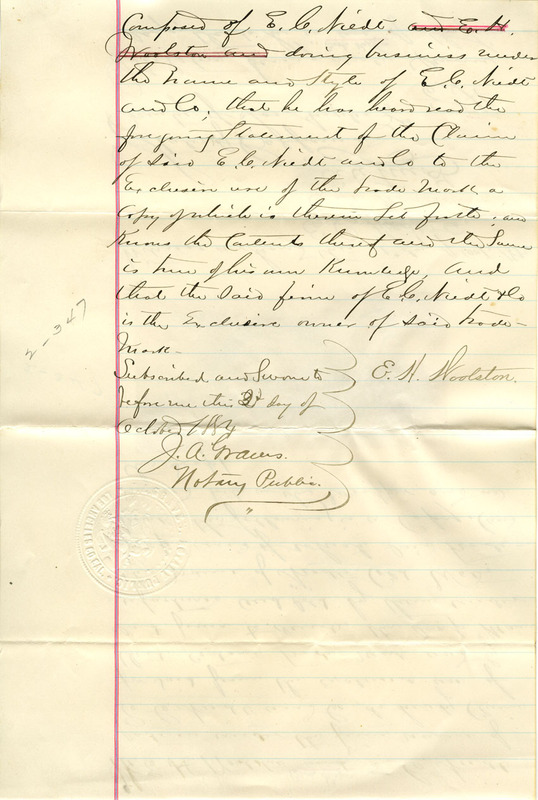 Composed of E. C. Niedt and E. H.
Woolston and doing business under
the name and Style of E. C. Niedt
and Co, that he has heard read the
foregoing Statement of the Claim
of said E. C. Niedt and Co to the
Exclusive use of the trade mark a
Copy of which is therein Set forth, and
Knows the Contents thereof and the Same
is true of his own Knowledge, and
that the Said firm of E. C. Niedt & Co
is the Exclusive owner of said trade-
Mark-
Subscribed and Sworn to
before me this day of
October 1884
E. H. Woolston.
J. A. Graves.
Notary Public.
2-347